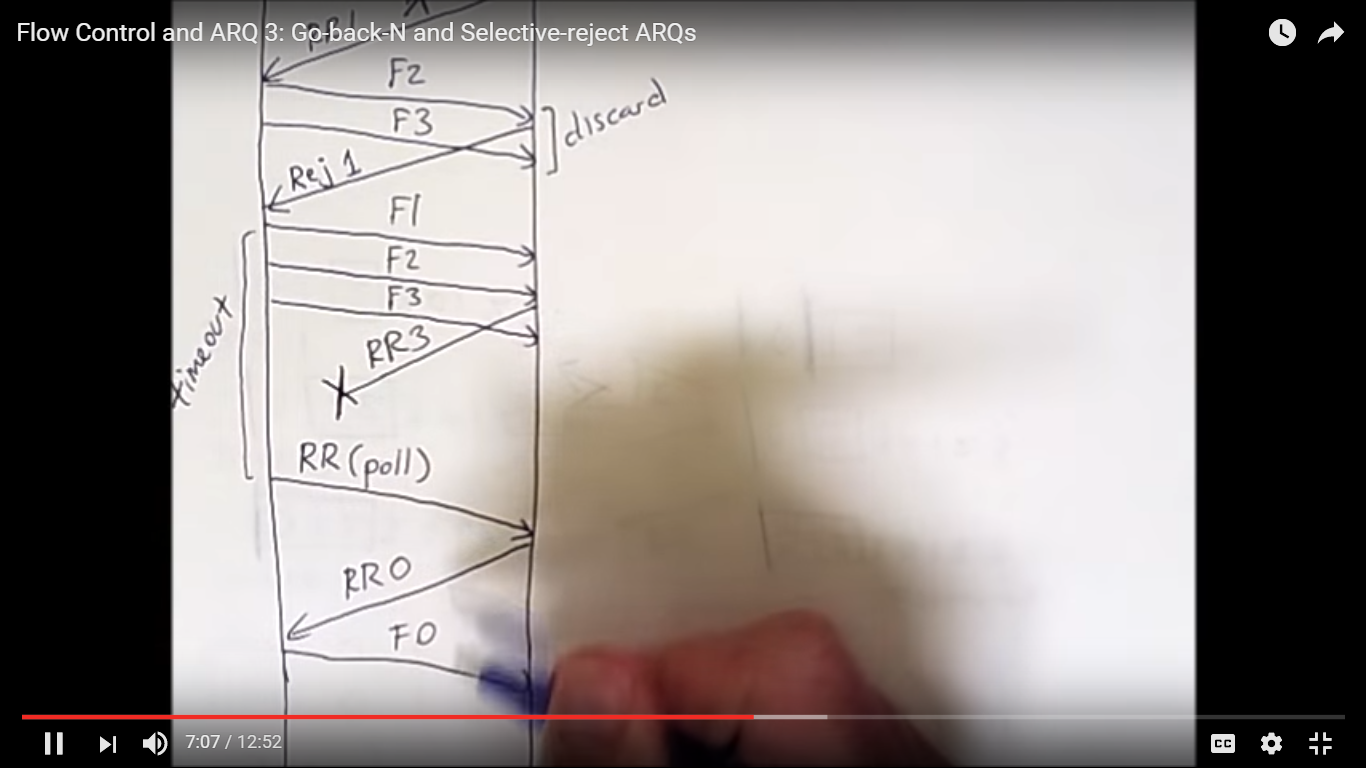 Flow Control and ARQ 3: Go-back-N and Selective-reject ARQs
RR1
F2
F3
discard
Rej 1
F1
F2
F3
RR3
timeout
RR (poll)
RR0
F0
7:07 / 12:52
CC